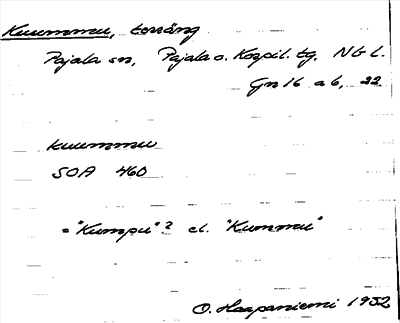 Kuummu, terräng
Pajala sn, Pajala o. Korpil. tg, NGL.
Gn 16 a b, 22
kuummu
SOA 460
= "Kumpu"? el. "Kummu"
O. Haapaniemi 1932